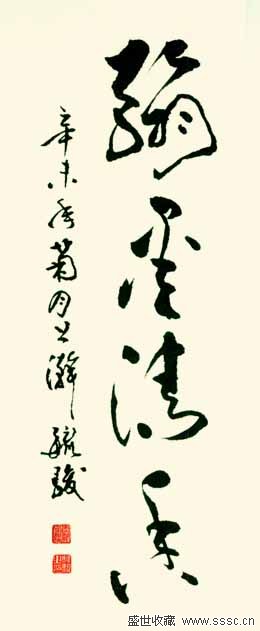 翰墨清香
辛未年菊月上澣毓駿
盛世收藏 www.sssc.cn